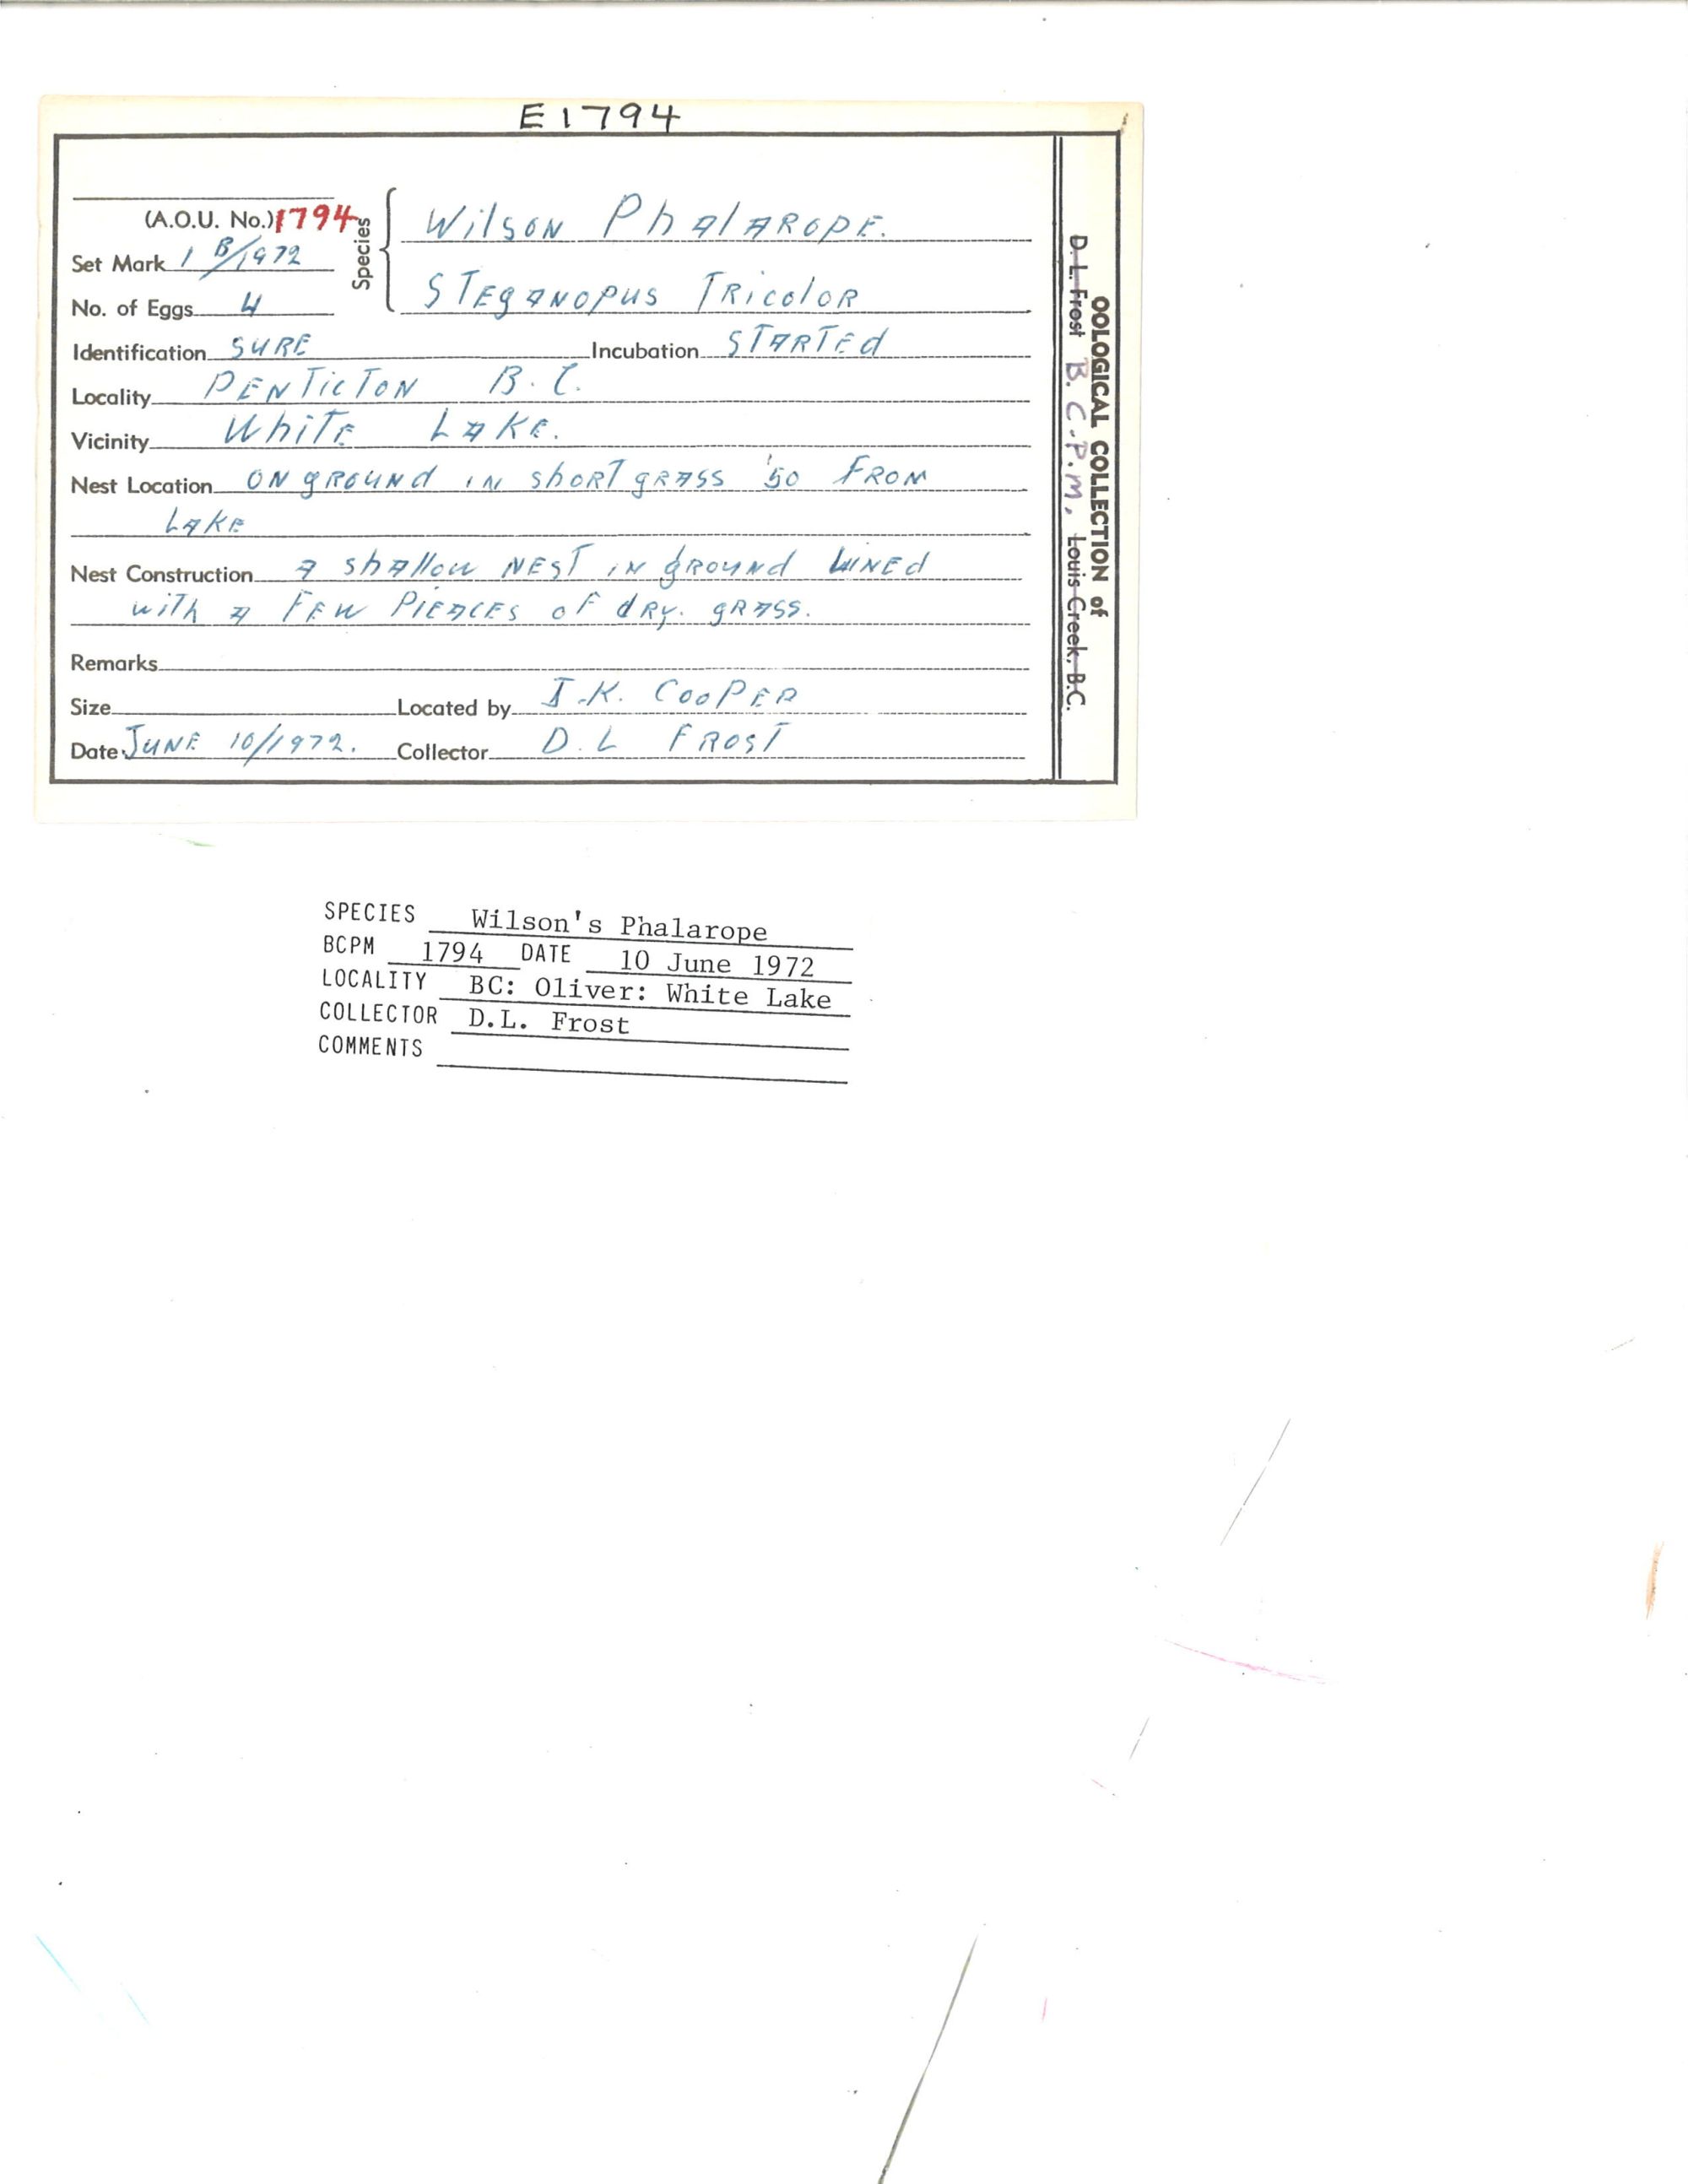 E1794
(A.O.U. No.) 1794
Set Mark 1 B/1972
No. of Eggs 4
Species
Wilson Phalarope.
Steganopus Tricolor
Identification SURE Incubation STARTEd
Locality PENTicTON B.C.
Vicinity White Lake.
Nest Location ON gROUNd IN shORT gRASS '50 FROM
Lake
Nest Construction A shallow NEST IN gROUNd LINEd
with A FEW PIEACES OF dRy. gRASS.
Remarks
Size Located by J.K. COOPER
Date JUNE 10/1972. Collector D.L FROST
OOLOGICAL COLLECTION of
D. L. Frost B.C.P.M. Louis Creek, B.C.
SPECIES Wilson's Phalarope
BCPM 1794 DATE 10 June 1972
LOCALITY BC: Oliver: White Lake
COLLECTOR D.L. Frost
COMMENTS